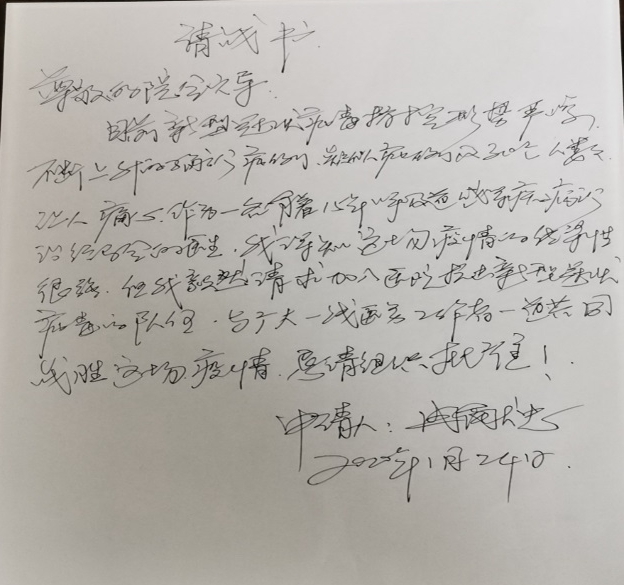 请战书
尊敬的院领导:
目前新型冠状病毒防控形势严峻,
不断上升的确诊病例、疑似病例及死亡人数
让人痛心.作为一名有着15年呼吸道感染疾病诊
治经验的医生,我深知这场疫情的传染性
很强.但我毅然请求加入医院抗击新型冠状
病毒的队伍.与广大一线医务工作者一道共同
战胜这场疫情.恳请组织批准!
申请人:
2020年1月24日.